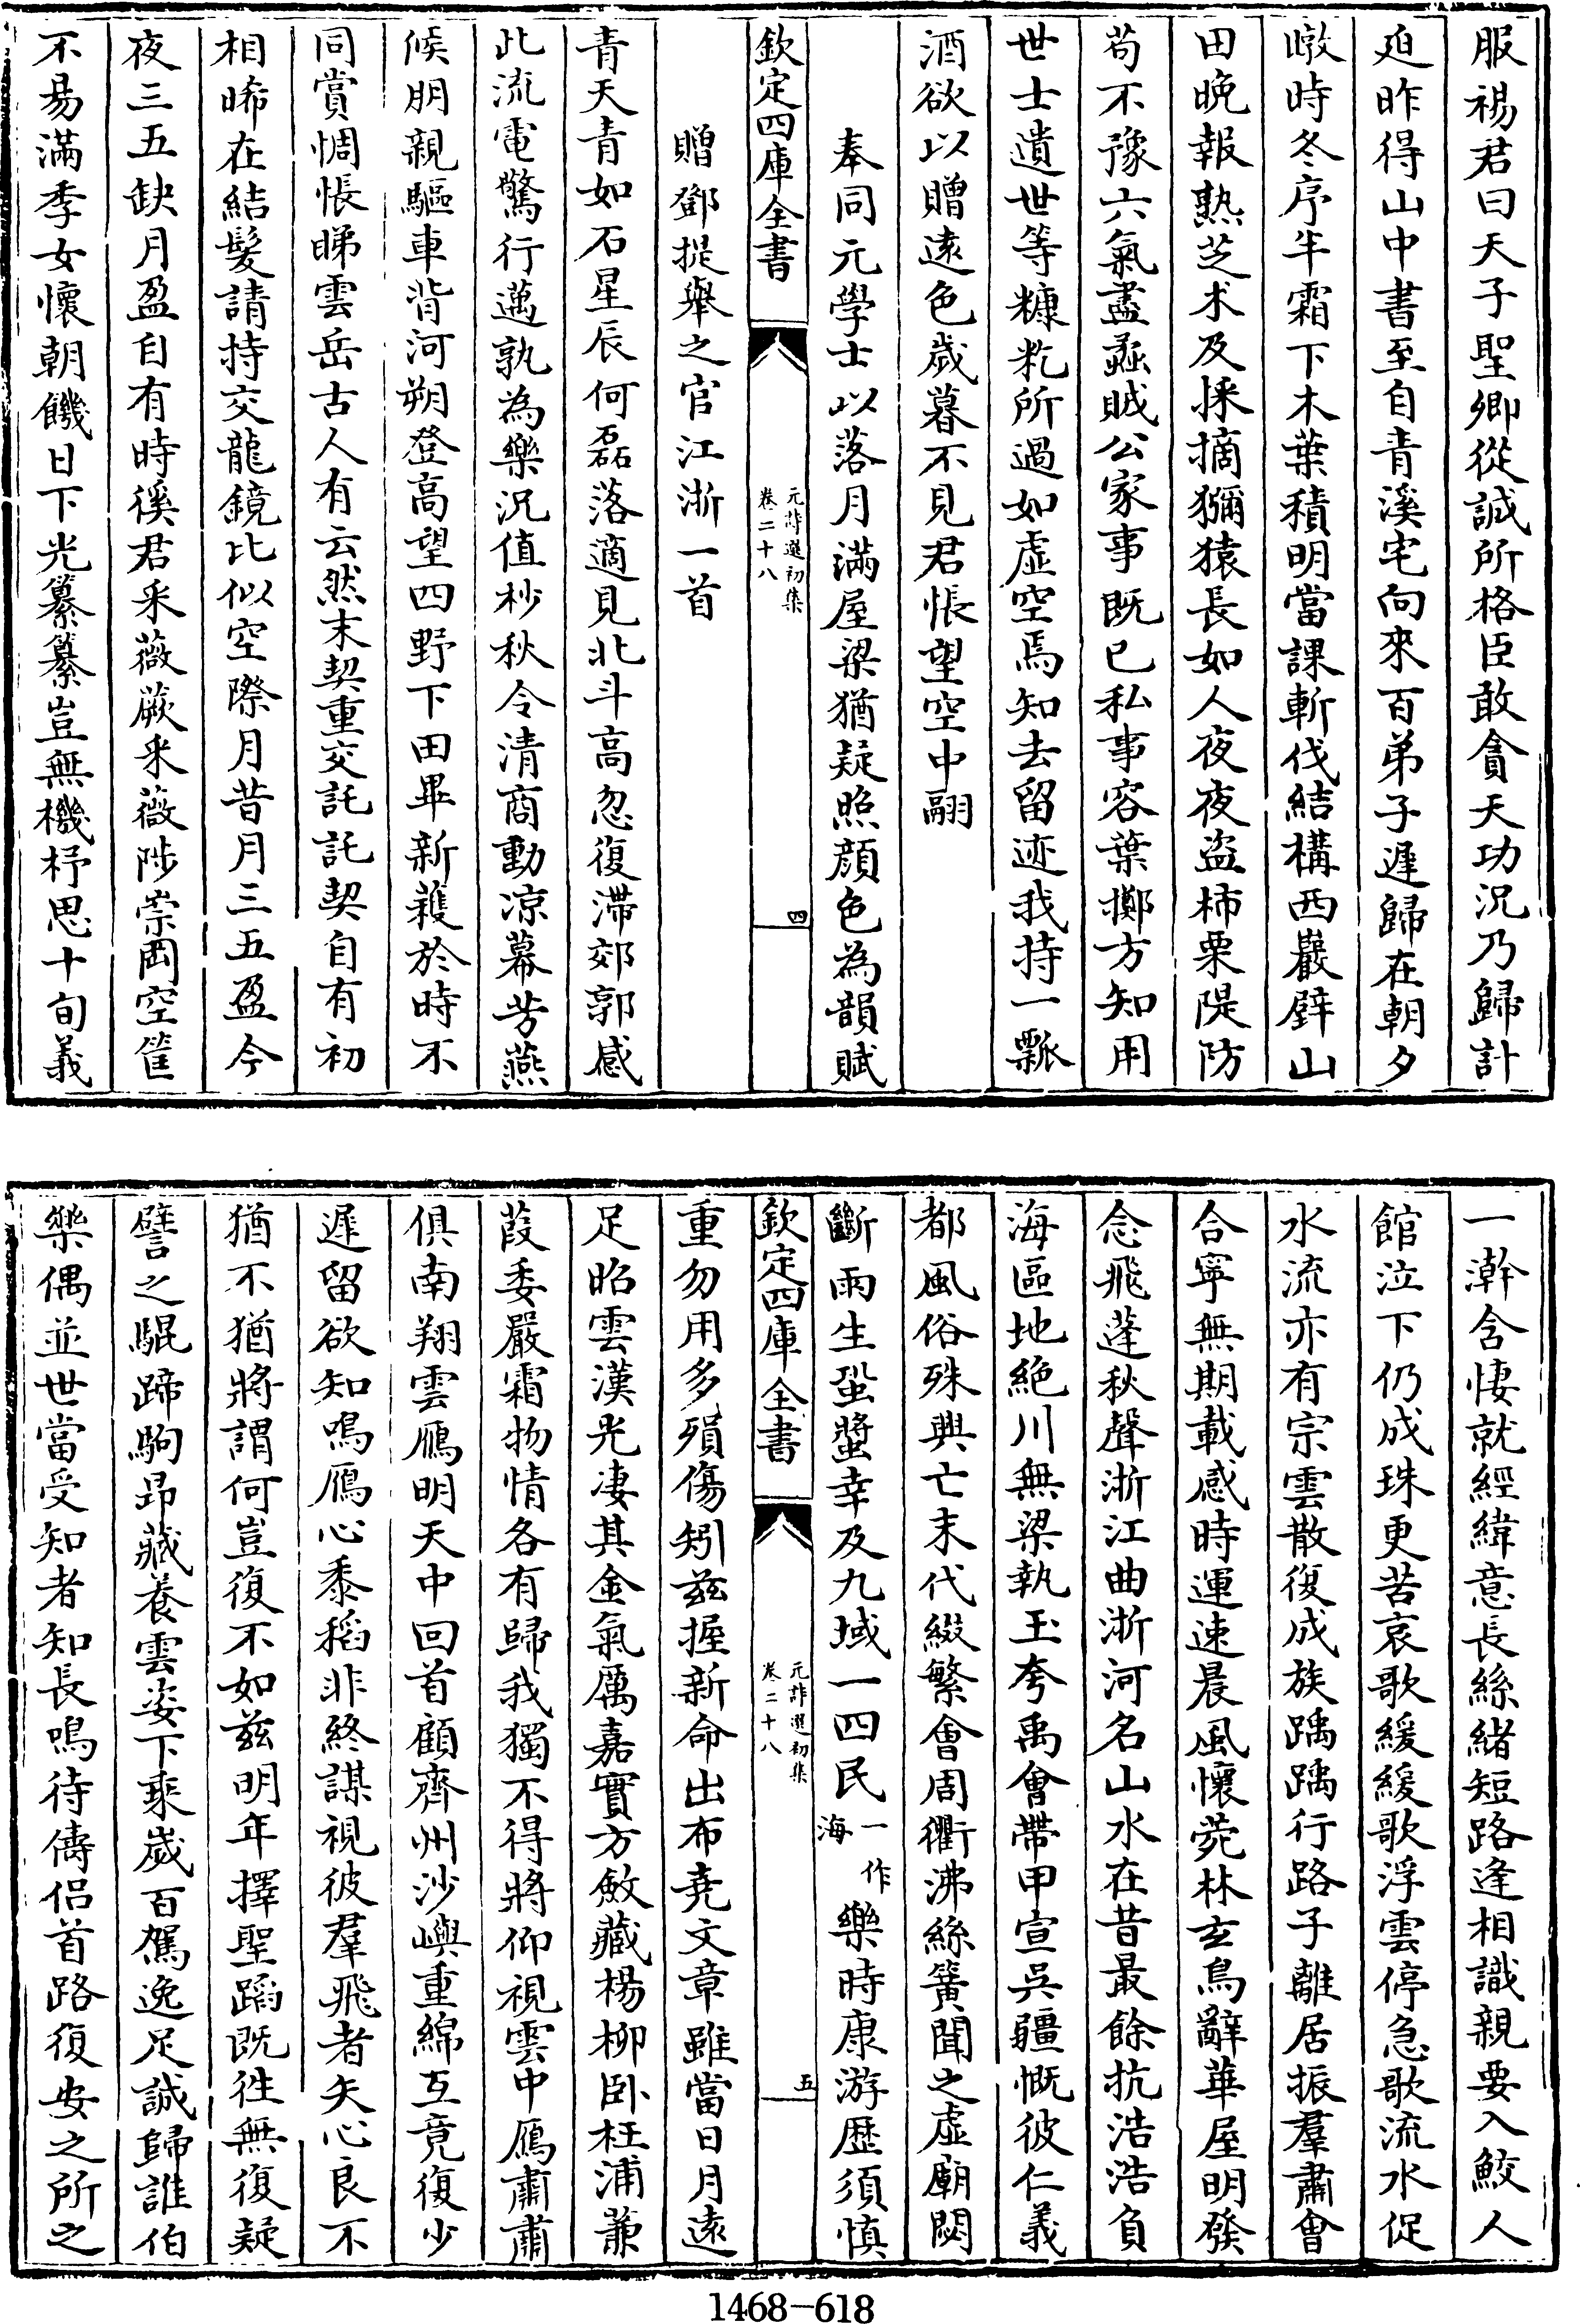 服裼君曰天子聖卿從誠所格臣敢貪天功況乃歸計
廹昨得山中書至自青溪宅向來百弟子遲歸在朝夕
暾時冬序半霜下木葉積明當課斬伐結構西巖壁山
田晚報熟芝朮及採摘獼猿長如人夜夜盗柿栗隄防
苟不豫六氣盡蟊賊公家事既已私事容棄擲方知用
世士遺世等糠籺所過如虚空焉知去留迹我持一瓢
酒欲以贈遠色歲暮不見君悵望空中翮
奉同元學士以落月滿屋梁猶疑照顔色為韻賦
欽定四庫全書
元詩選初集
卷二十八
四
贈鄧提舉之官江浙一首
青天青如石星辰何磊落適見北斗高忽復滯郊郭感
此流電驚行邁孰為樂況值杪秋令清商動凉幕芳燕
候朋親驅車背河朔登高望四野下田畢新穫於時不
同賞惆悵睇雲岳古人有云然末契重交託託契自有初
相睎在結髮請持交龍鏡比似空際月昔月三五盈今
夜三五缺月盈自有時徯君采薇蕨采薇陟崇岡空筐
不易滿季女懷朝饑日下光纂纂豈無機杼思十旬義
一澣含悽就經緯意長絲緒短路逢相識親要入鮫人
館泣下仍成珠更苦哀歌緩緩歌浮雲停急歌流水促
水流亦有宗雲散復成族踽踽行路子離居振羣肅會
合寜無期載感時運速晨風懷菀林玄鳥辭華屋明發
念飛蓬秋聲浙江曲浙河名山水在昔最餘杭浩浩負
海區地絶川無梁執玉夸禹會帶甲宣吳疆慨彼仁義
都風俗殊興亡末代綴繁會周衢沸絲簧聞之虚廟閟
斷雨生蛩螿幸及九域一四民一作海樂時康游歴須慎
欽定四庫全書
元詩選初集
卷二十八
五
重勿用多殞傷矧兹握新命出布堯文章雖當日月遠
足昭雲漢光凄其金氣厲嘉實方斂藏楊柳卧枉浦蒹
葭委嚴霜物情各有歸我獨不得將仰視雲中鴈肅肅
俱南翔雲鴈明天中回首顧齊州沙嶼重綿亙竟復少
遲留欲知鳴鴈心黍稻非終謀視彼羣飛者矢心良不
猶不猶將謂何豈復不如兹明年擇聖蹈既徃無復疑
譬之騉蹄駒昻藏養雲姿下乘歲百駕逸足誠歸誰伯
樂偶並世當受知者知長鳴待儔侣首路復安之所之
1468-618